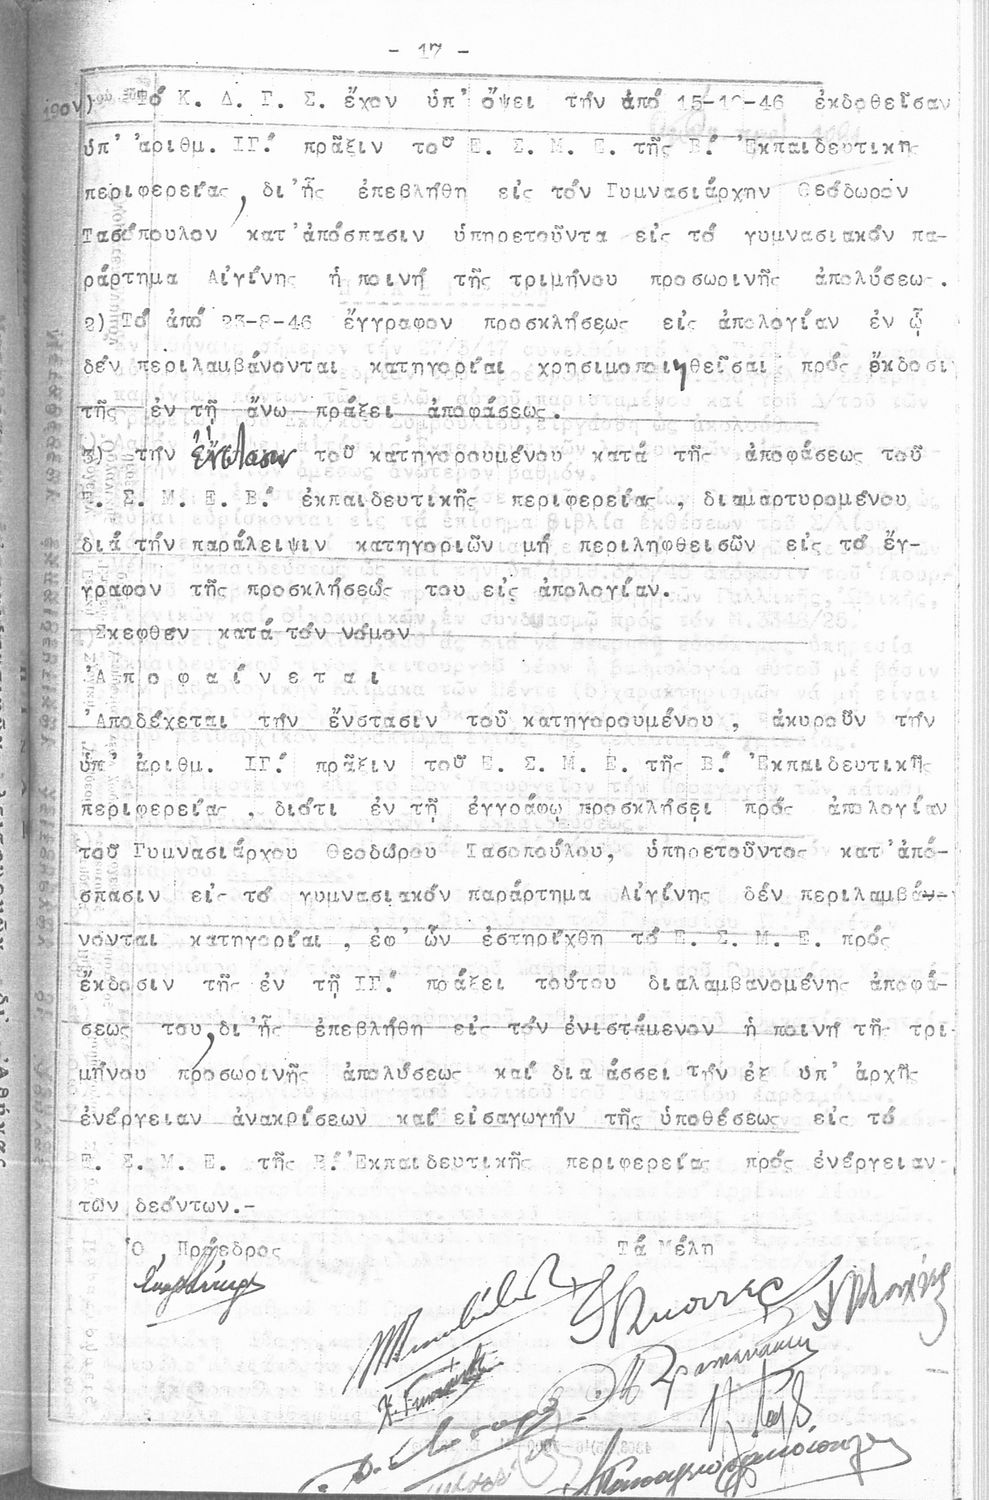 - 17 -
19ον) Τό Κ. Δ. Γ. Σ. ἔχον ὑπ' ὄψει τήν ἀπό 15-10-46 ἐκδοθεῖσαν
ὑπ' ἀριθμ. ΙΓ! πρᾶξιν τοῦ Ε. Σ. Μ. Ε. τῆς Β! Ἐκπαιδευτικῆς
περιφερείας, δι' ἧς ἐπεβλήθη εἰς τόν Γυμνασιάρχην Θεόδωρον
Τασόπουλον κατ' ἀπόσπασιν ὑπηρετοῦντα εἰς τό γυμνασιακόν πα-
ράρτημα Αἰγίνης ἡ ποινή τῆς τριμήνου προσωρινῆς ἀπολύσεως.
2) Τό ἀπό 23-8-46 ἔγγραφον προσκλήσεως εἰς ἀπολογίαν ἐν ᾧ
δέν περιλαμβάνονται κατηγορίαι χρησιμοποιηθεῖσαι πρός ἔκδοσι
τῆς ἐν τῇ ἄνω πράξει ἀποφάσεως.
3) τήν ἔνστασιν τοῦ κατηγορουμένου κατά τῆς ἀποφάσεως τοῦ
Ε. Σ. Μ. Ε. Β! ἐκπαιδευτικῆς περιφερείας, διαμαρτυρομένου
διά τήν παράλειψιν κατηγοριῶν μή περιληφθεισῶν εἰς τό ἔγ-
γραφον τῆς προσκλήσεώς του εἰς ἀπολογίαν.
Σκεφθέν κατά τόν νόμον
Ἀποφαίνεται
Ἀποδέχεται τήν ἔνστασιν τοῦ κατηγορουμένου, ἀκυροῦν τήν
ὑπ' ἀριθμ. ΙΓ! πρᾶξιν τοῦ Ε. Σ. Μ. Ε. τῆς Β! Ἐκπαιδευτικῆς
περιφερείας, διότι ἐν τῇ ἐγγράφῳ προσκλήσει πρός ἀπολογίαν
τοῦ Γυμνασιάρχου Θεοδώρου Τασοπούλου, ὑπηρετοῦντος κατ' ἀπό-
σπασιν εἰς τό γυμνασιακόν παράρτημα Αἰγίνης δέν περιλαμβά-
νονται κατηγορίαι, ἐφ' ὧν ἐστηρίχθη τό Ε. Σ. Μ. Ε. πρός
ἔκδοσιν τῆς ἐν τῇ ΙΓ! πράξει τούτου διαλαμβανομένης ἀποφά-
σεώς του, δι' ἧς ἐπεβλήθη εἰς τόν ἐνιστάμενον ἡ ποινή τῆς τρι
μήνου προσωρινῆς ἀπολύσεως καί διατάσσει τήν ἐξ ὑπ' ἀρχῆς
ἐνέργειαν ἀνακρίσεων καί εἰσαγωγήν τῆς ὑποθέσεως εἰς τό
Ε. Σ. Μ. Ε. τῆς Β! Ἐκπαιδευτικῆς περιφερείας πρός ἐνέργειαν
τῶν δεόντων.-
Ὁ Πρόεδρος Τά Μέλη